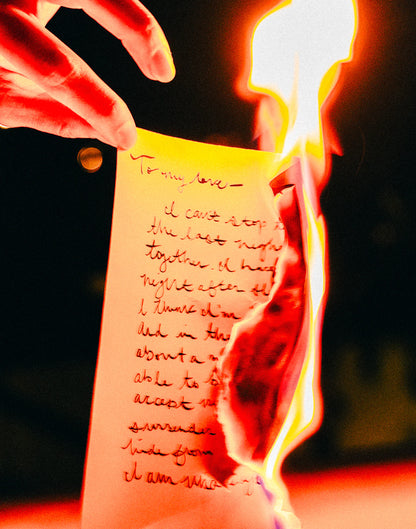 To my love -
I can't stop
the last nigh
together. I had
night after
I think I'm i
and in the
about a m
able to b
accept
surrender
hide from
I am